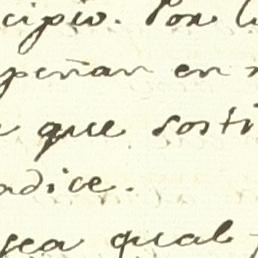 cipio. Por l
peñan en
que sosti
adice.
sea qual